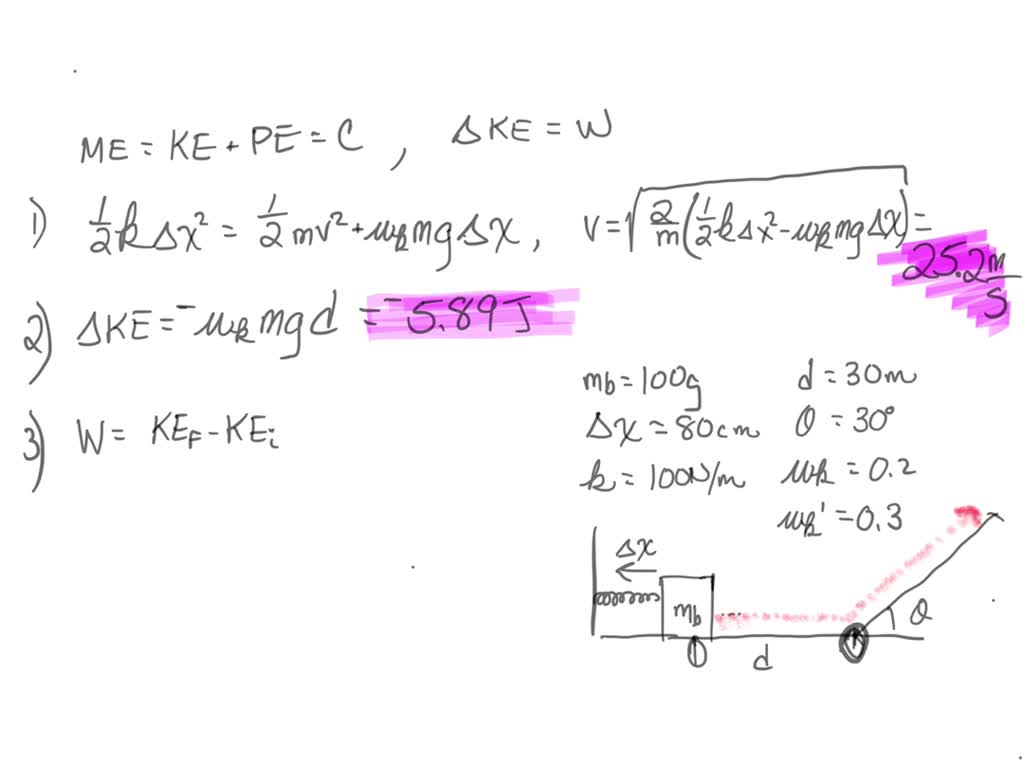 ME = KE + PE = C , ΔKE = W
1) 1/2 k Δx² = 1/2 mv² + μk mg Δx , V = √(2/m (1/2 k Δx² - μk mg Δx)) = 25.2 m/s
2) ΔKE = -μk mg d = -5.89 J
3) W = KE_F - KE_i
mb = 100g d = 30m
Δx = 80cm θ = 30°
k = 100N/m μk = 0.2
μk' = 0.3
Δx
mb
θ
1 d